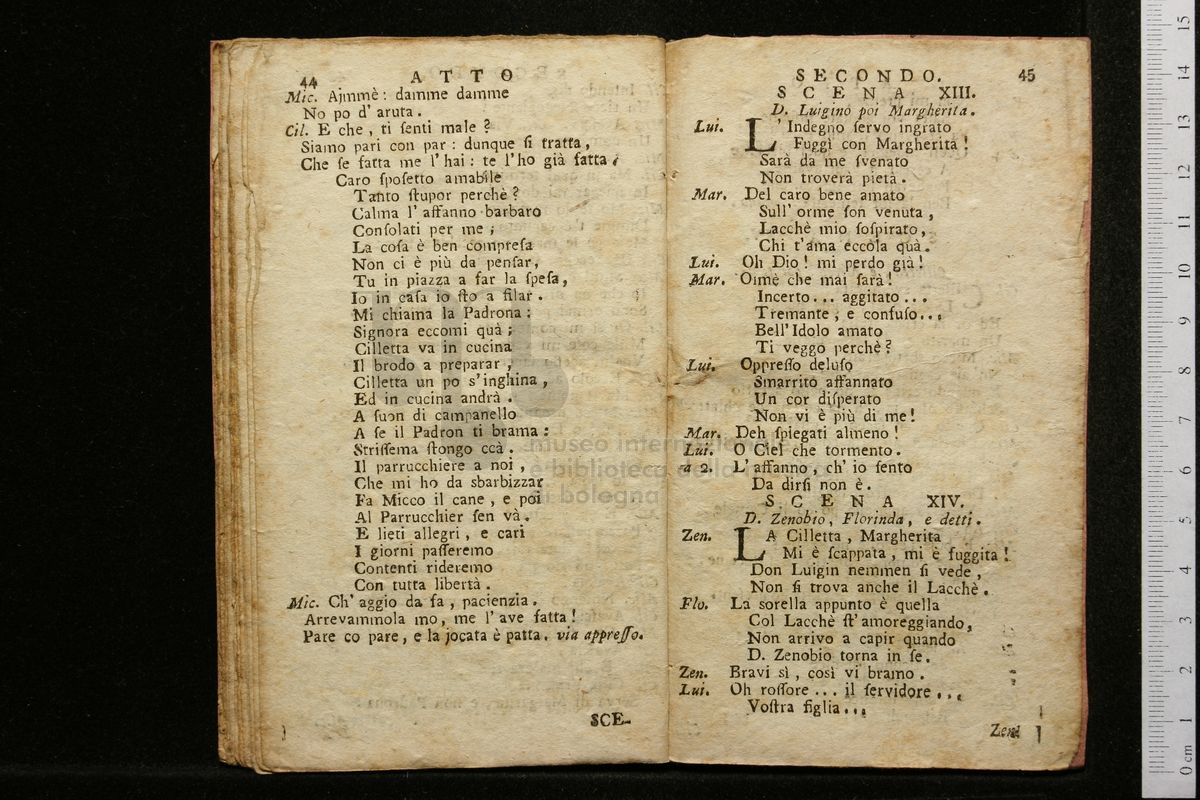 44 ATTO
Mic. Ajmmè: damme damme
No po d' aruta.
Cil. E che, ti ſenti male?
Siamo pari con par: dunque ſi tratta,
Che ſe fatta me l'hai: te l'ho già fatta.
Caro ſpoſetto amabile
Tanto ſtupor perchè?
Calma l' affanno barbaro
Conſolati per me;
La coſa è ben compreſa
Non ci è più da penſar,
Tu in piazza a far la ſpeſa,
Io in caſa io ſto a filar.
Mi chiama la Padrona:
Signora eccomi quà;
Cilletta va in cucina
Il brodo a preparar,
Cilletta un po s'inghina,
Ed in cucina andrà.
A ſuon di campanello
A ſe il Padron ti brama:
Striſſema ſtongo ccà.
Il parrucchiere a noi,
Che mi ho da sbarbizzar
Fa Micco il cane, e poi
Al Parrucchier ſen và.
E lieti allegri, e cari
I giorni paſſeremo
Contenti rideremo
Con tutta libertà.
Mic. Ch' aggio da fa, pacienzia.
Arrevammola mo, me l'ave fatta!
Pare co pare, e la jocata è patta. via appreſſo.
SCE-
SECONDO. 45
SCENA XIII.
D. Luigino poi Margherita.
Lui. L' Indegno ſervo ingrato
Fuggì con Margherita!
Sarà da me ſvenato
Non troverà pietà.
Mar. Del caro bene amato
Sull' orme ſon venuta,
Lacchè mio ſoſpirato,
Chi t'ama eccola quà.
Lui. Oh Dio! mi perdo già!
Mar. Oimè che mai ſarà!
Incerto... aggitato...
Tremante, e confuſo...
Bell'Idolo amato
Ti veggo perchè?
Lui. Oppreſſo deluſo
Smarrito affannato
Un cor diſperato
Non vi è più di me!
Mar. Deh ſpiegati almeno!
Lui. O Ciel che tormento.
a 2. L' affanno, ch' io ſento
Da dirſi non è.
SCENA XIV.
D. Zenobio, Florinda, e detti.
Zen. LA Cilletta, Margherita
Mi è ſcappata, mi è fuggita!
Don Luigin nemmen ſi vede,
Non ſi trova anche il Lacchè.
Flo. La sorella appunto è quella
Col Lacchè ſt'amoreggiando,
Non arrivo a capir quando
D. Zenobio torna in ſe.
Zen. Bravi sì, così vi bramo.
Lui. Oh roſſore... il ſervidore...
Voſtra figlia...
Zen.
museo internazionale
e biblioteca della
di bologna
0 cm 1 2 3 4 5 6 7 8 9 10 11 12 13 14 15